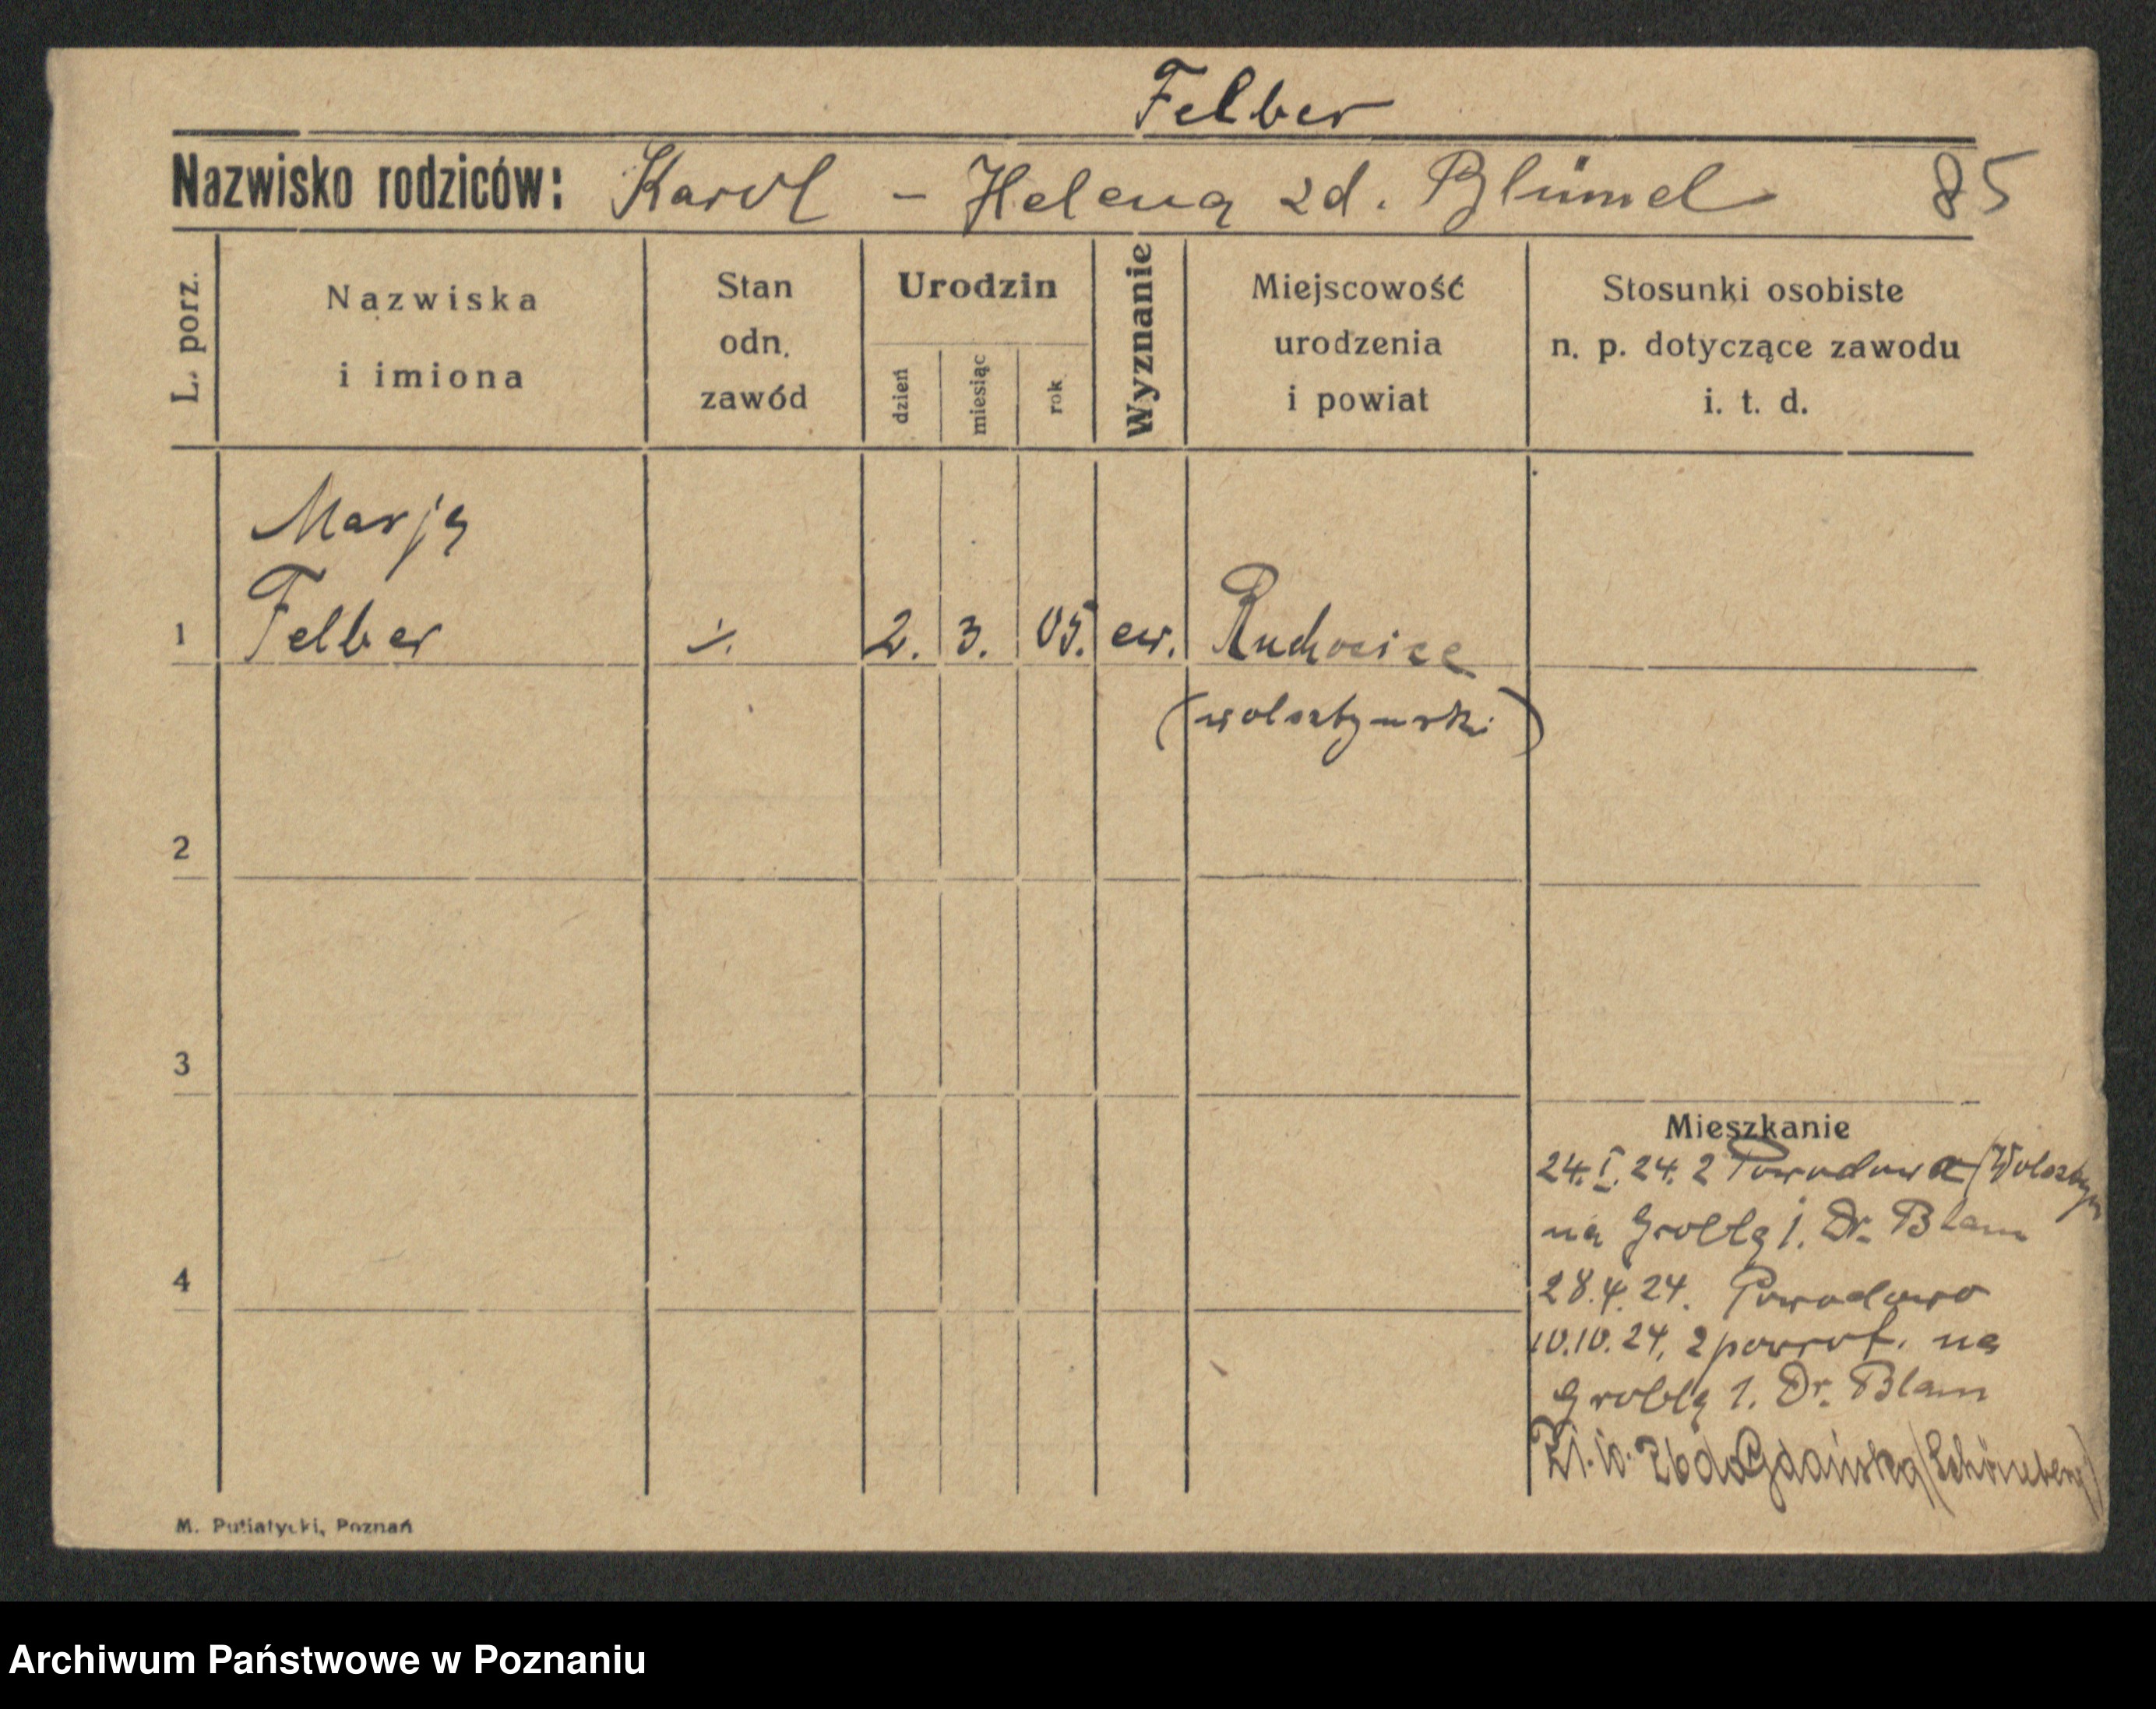 Felber
Nazwisko rodziców: Karol - Helena zd. Blümel 85
L. porz.
Nazwiska
i imiona
Stan
odn.
zawód
Urodzin
dzień
miesiąc
rok
Wyznanie
Miejscowość
urodzenia
i powiat
Stosunki osobiste
n. p. dotyczące zawodu
i. t. d.
Marja
1 Felber ⁒ 2. 3. 05. ew. Ruchocice
(wolsztyński)
2
3
4
Mieszkanie
24. I. 24. z Powodowa (Wolsztyn
na Groblą 1. Dr. Blam
28.4.24. Powodowo
10.10.24. z powrot. na
Groblą 1. Dr. Blam
21.10.26 do Gdańska (Schöneberg)
M. Putiatycki, Poznań
Archiwum Państwowe w Poznaniu